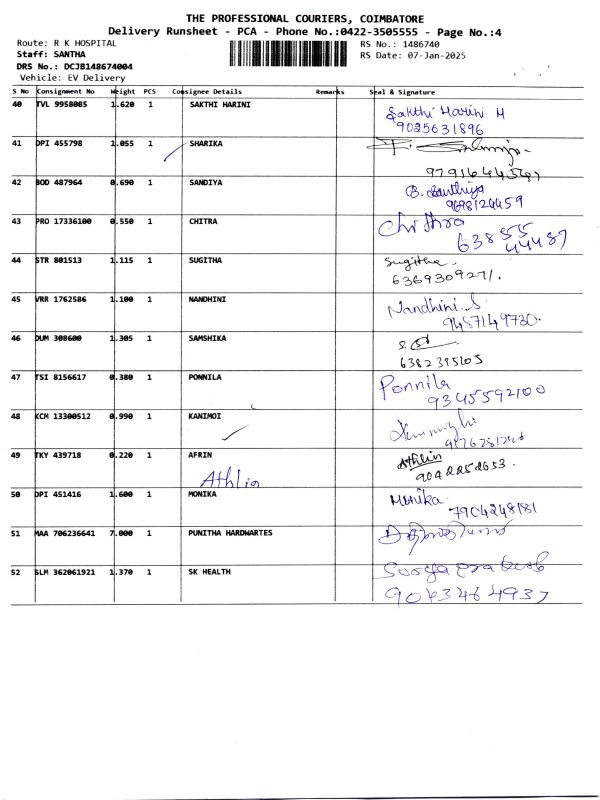 THE PROFESSIONAL COURIERS, COIMBATORE
Delivery Runsheet - PCA - Phone No.:0422-3505555 - Page No.:4
Route: R K HOSPITAL
RS No.: 1486740
Staff: SANTHA
RS Date: 07-Jan-2025
DRS No.: DCJB148674004
Vehicle: EV Delivery
S No Consignment No Weight PCS Consignee Details Remarks Seal & Signature
40 TVL 9958085 1.620 1 SAKTHI HARINI Sakthi Harini M
9025631896
41 DPI 455798 1.055 1 SHARIKA
42 BOD 487964 0.690 1 SANDIYA B. Santhiya
43 PRO 17336100 0.550 1 CHITRA Chithra
63855
44487
44 STR 801513 1.115 1 SUGITHA Sugitha.
6369309271.
45 VRR 1762586 1.100 1 NANDHINI Nandhini.S
9487149730.
46 DUM 308600 1.305 1 SAMSHIKA
6382395105
47 TSI 8156617 0.380 1 PONNILA Ponnila
9345592100
48 KCM 13300512 0.990 1 KANIMOI
49 TKY 439718 0.220 1 AFRIN Athlin
9042252653.
Athlin
50 DPI 451416 1.600 1 MONIKA Monika
7904248181
51 MAA 706236641 7.000 1 PUNITHA HARDWARTES
52 SLM 362061921 1.370 1 SK HEALTH Suryaprakash
9043464937